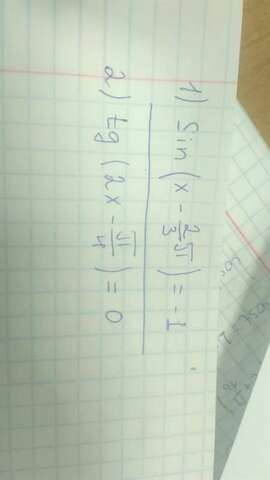 1) Sin (x - 2π/3) = -1
2) tg (2x - π/4) = 0